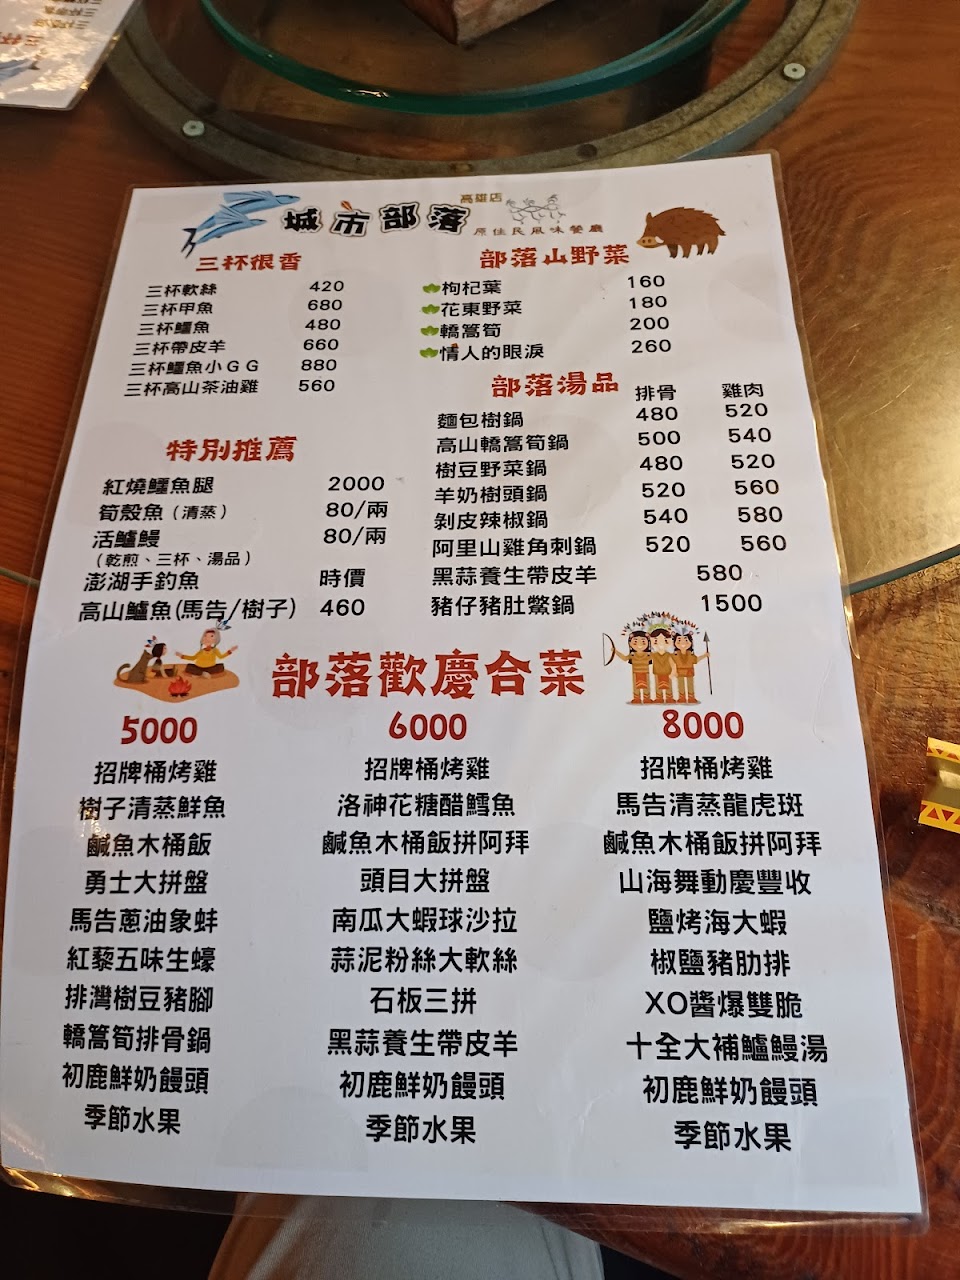 高雄店
城市部落
原住民風味餐廳
三杯很香
三杯軟絲 420
三杯甲魚 680
三杯鱷魚 480
三杯帶皮羊 660
三杯鱷魚小GG 880
三杯高山茶油雞 560
部落山野菜
枸杞葉 160
花東野菜 180
轎篙筍 200
情人的眼淚 260
特別推薦
紅燒鱷魚腿 2000
筍殼魚(清蒸) 80/兩
活鱸鰻 80/兩
(乾煎、三杯、湯品)
澎湖手釣魚 時價
高山鱸魚(馬告/樹子) 460
部落湯品 排骨 雞肉
麵包樹鍋 480 520
高山轎篙筍鍋 500 540
樹豆野菜鍋 480 520
羊奶樹頭鍋 520 560
剝皮辣椒鍋 540 580
阿里山雞角刺鍋 520 560
黑蒜養生帶皮羊 580
豬仔豬肚鱉鍋 1500
部落歡慶合菜
5000
招牌桶烤雞
樹子清蒸鮮魚
鹹魚木桶飯
勇士大拼盤
馬告蔥油象蚌
紅藜五味生蠔
排灣樹豆豬腳
轎篙筍排骨鍋
初鹿鮮奶饅頭
季節水果
6000
招牌桶烤雞
洛神花糖醋鱈魚
鹹魚木桶飯拼阿拜
頭目大拼盤
南瓜大蝦球沙拉
蒜泥粉絲大軟絲
石板三拼
黑蒜養生帶皮羊
初鹿鮮奶饅頭
季節水果
8000
招牌桶烤雞
馬告清蒸龍虎斑
鹹魚木桶飯拼阿拜
山海舞動慶豐收
鹽烤海大蝦
椒鹽豬肋排
XO醬爆雙脆
十全大補鱸鰻湯
初鹿鮮奶饅頭
季節水果